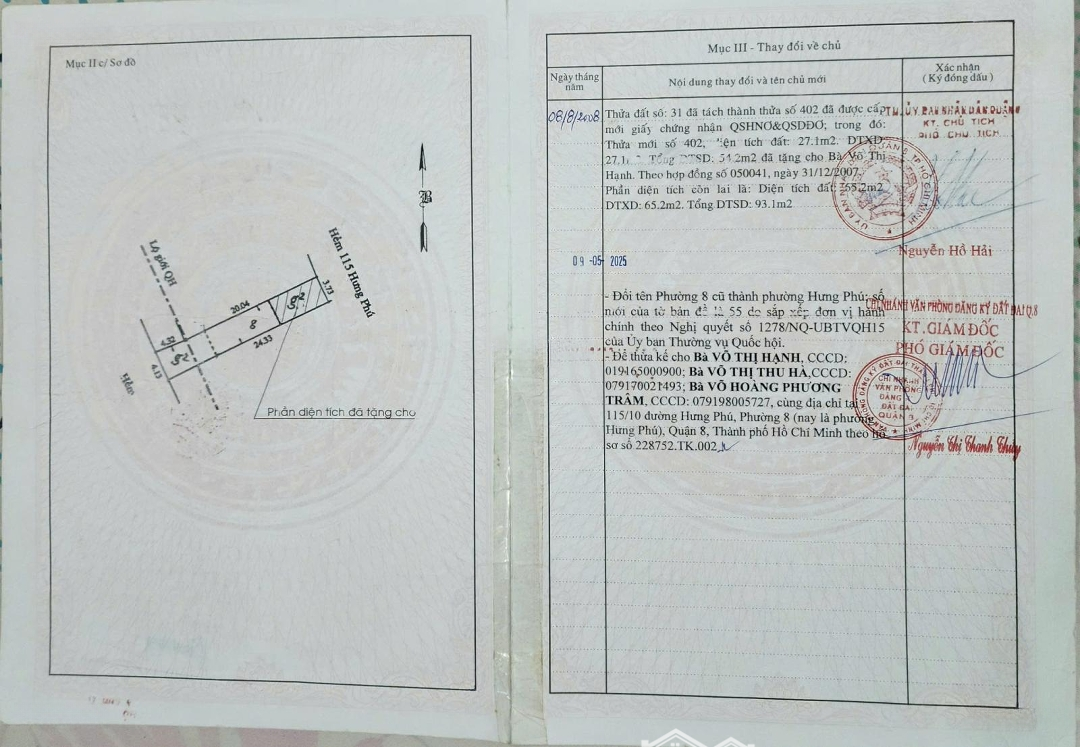 Mục II c/ Sơ đồ
B
Lộ giới QH
Hẻm 115 Hưng Phú
20.04
3.73
8
24.33
4.32
4.13
Hẻm
Phần diện tích đã tặng cho
Mục III - Thay đổi về chủ
Ngày tháng năm
Nội dung thay đổi và tên chủ mới
Xác nhận
( Ký đóng dấu )
08/8/2008
Thửa đất số: 31 đã tách thành thửa số 402 đã được cấp
mới giấy chứng nhận QSHNƠ&QSDĐƠ; trong đó:
Thửa mới số 402, diện tích đất: 27.1m2. DTXD
27.1 Tổng DTSD: 54.2m2 đã tặng cho Bà Võ Thị
Hạnh. Theo hợp đồng số 050041, ngày 31/12/2007.
Phần diện tích còn lại là: Diện tích đất: 65.2m2
DTXD: 65.2m2. Tổng DTSD: 93.1m2
TM. ỦY BAN NHÂN DÂN QUẬN
KT. CHỦ TỊCH
PHÓ CHỦ TỊCH
Nguyễn Hồ Hải
09 -05- 2025
- Đổi tên Phường 8 cũ thành phường Hưng Phú; số
mới của tờ bản đồ là 55 do sắp xếp đơn vị hành
chính theo Nghị quyết số 1278/NQ-UBTVQH15
của Ủy ban Thường vụ Quốc hội.
- Để thừa kế cho Bà VÕ THỊ HẠNH, CCCD:
Bà VÕ THỊ THU HÀ, CCCD:
Bà VÕ HOÀNG PHƯƠNG
TRÂM, CCCD: 079198005727, cùng địa chỉ tại
115/10 đường Hưng Phú, Phường 8 (nay là phường
Hưng Phú), Quận 8, Thành phố Hồ Chí Minh theo hồ
sơ số 228752.TK.002
CHI NHÁNH VĂN PHÒNG ĐĂNG KÝ ĐẤT ĐAI Q.8
KT. GIÁM ĐỐC
PHÓ GIÁM ĐỐC
CHI NHÁNH
VĂN PHÒNG
ĐĂNG KÝ
ĐẤT ĐAI
QUẬN 8
Nguyễn Thị Thanh Thủy